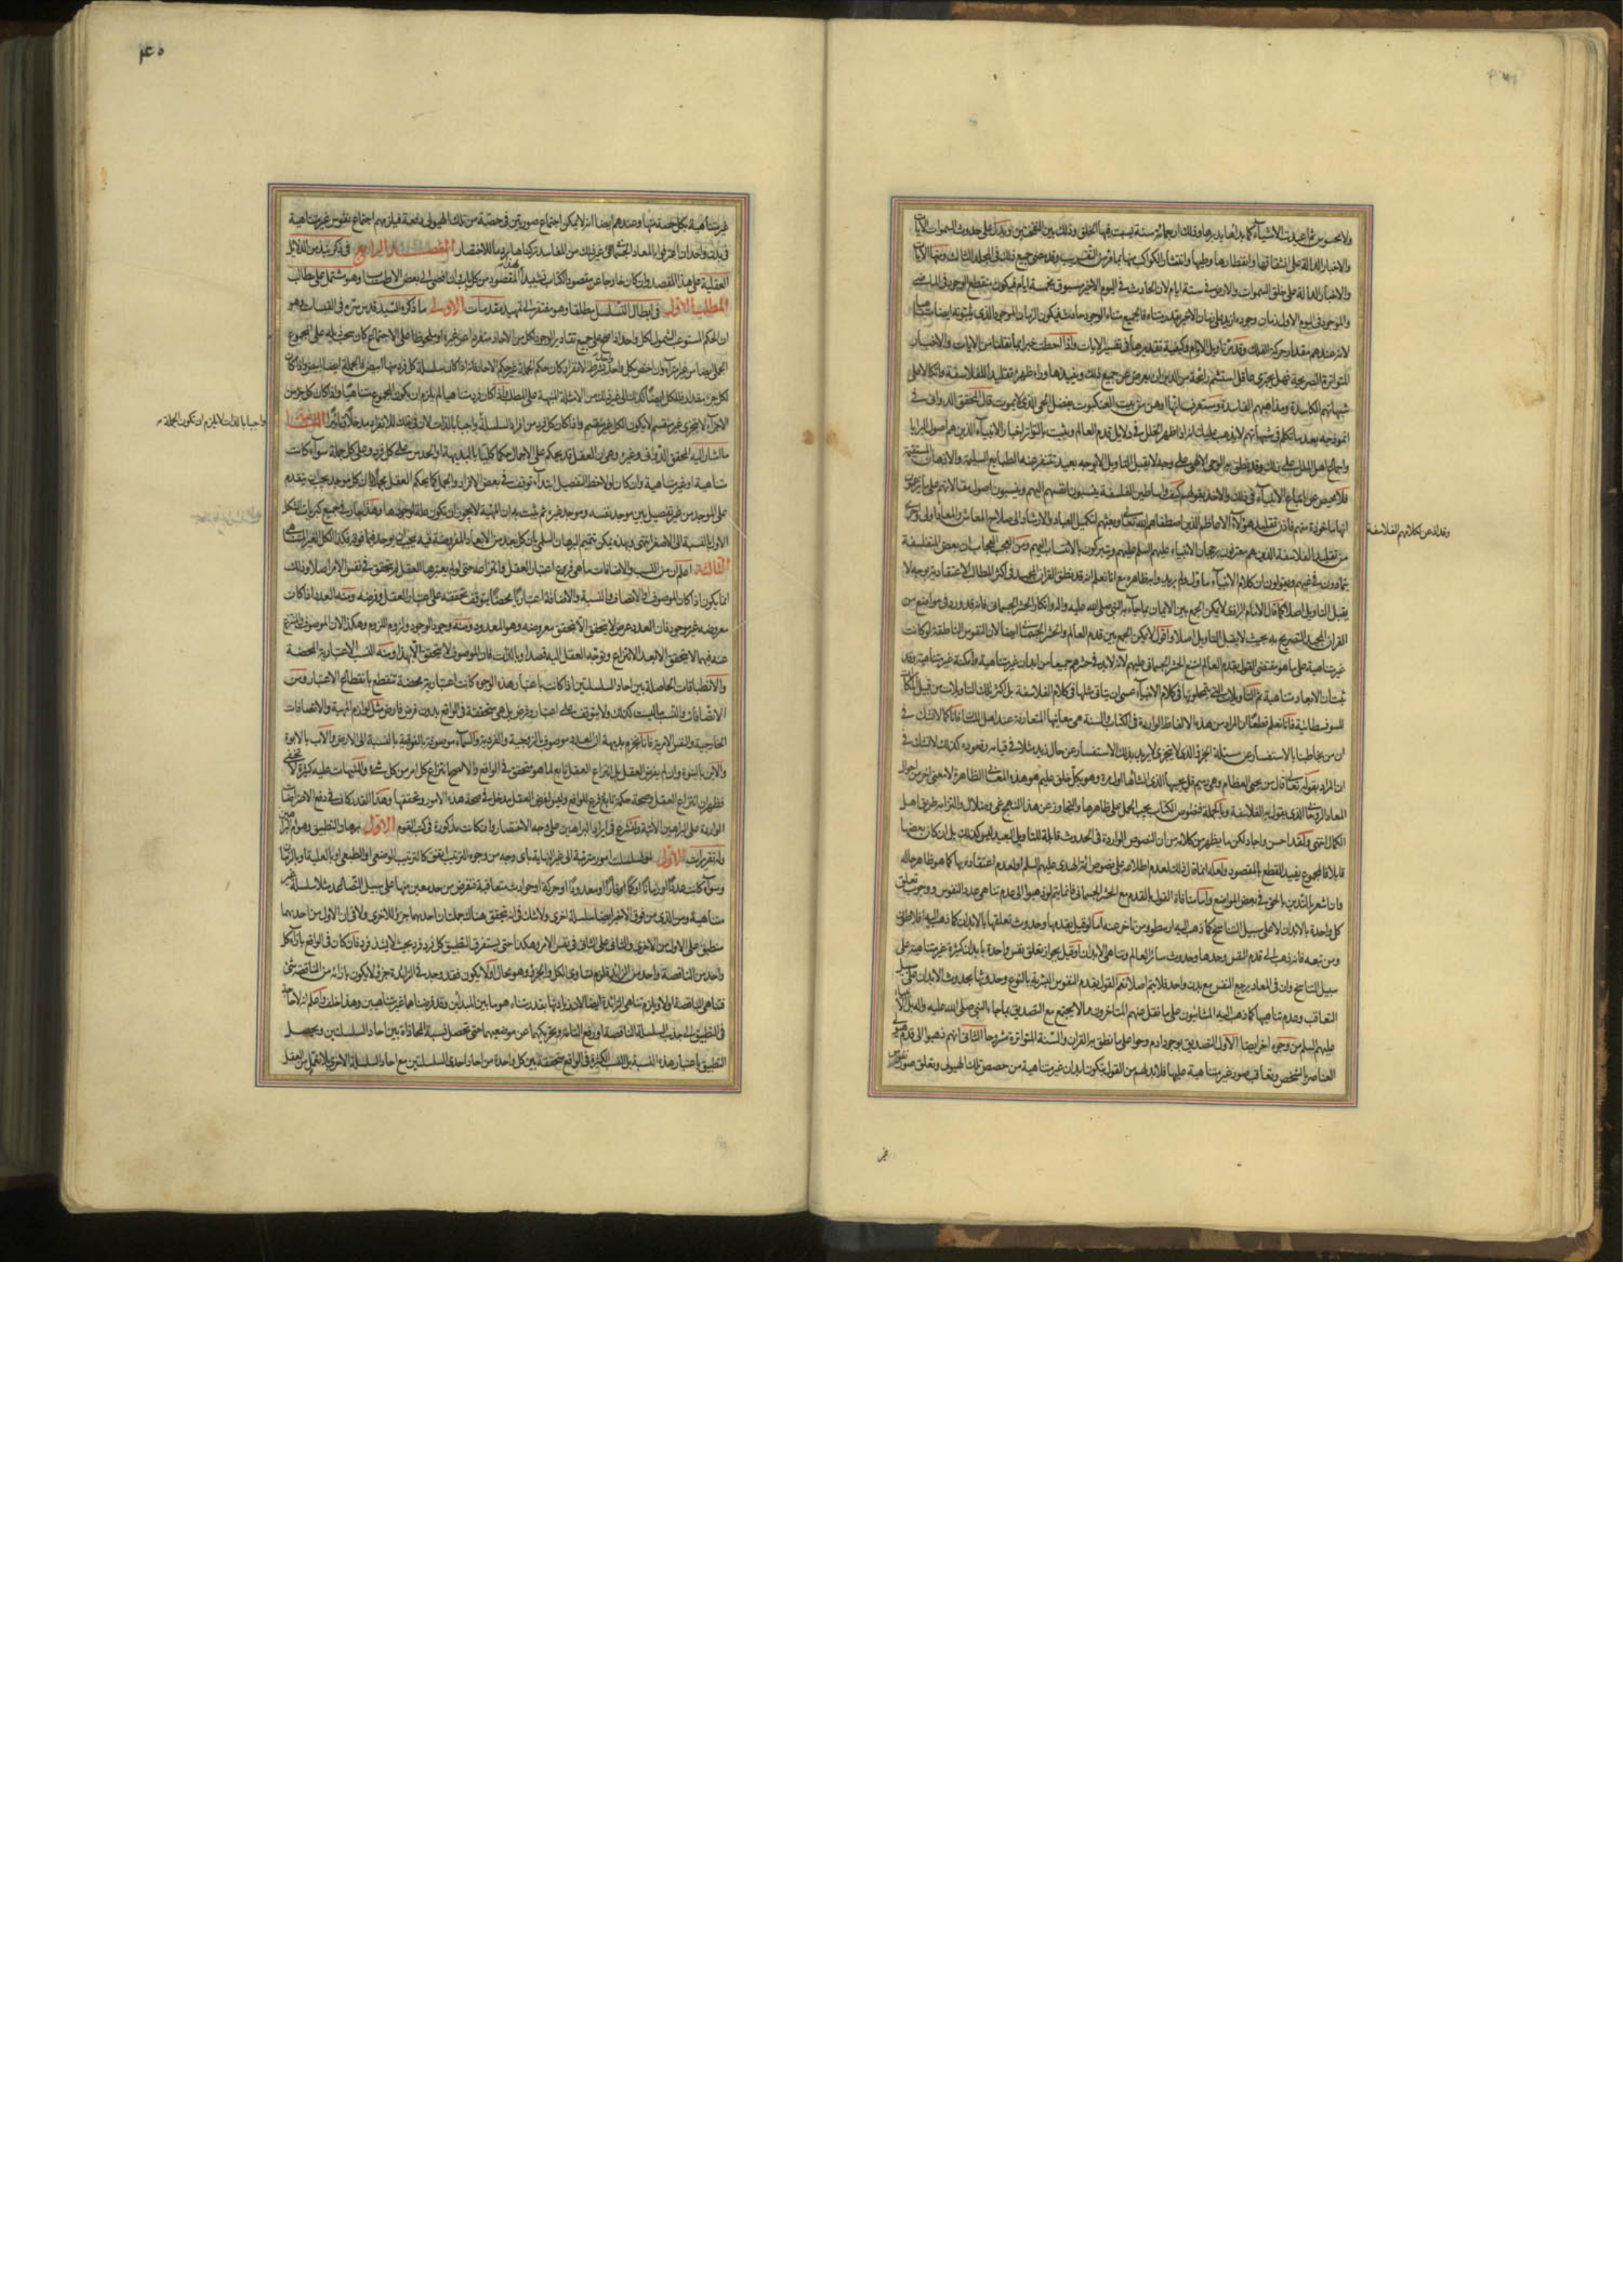 ولا محسوس ثم احدث الاشياء كما بدا
والاخبار الدالة على انشقاقها وانفطارها وطيها وانتشار الكواكب منها
والاخبار الدالة على خلق السموات والارض في ستة ايام لان الحادث في اليوم الاخير مسبوق بخمسة ايام فيكون منقطع الوجود في الماضي
والموجود في اليوم الاول زمان وجوده ازيد على زمان الاخير بقدر متناه فالجميع متناه الوجود حادث فيكون الزمان الموجود الذي يثبتونه ايضا متناهيا
لانه عندهم مقدار حركة الفلك وقد مر تاويل الايام وكيفية تقديرها في تفسير الايات واذا احطت خبرا بما نقلنا من الايات والاخبار
المتواترة الصريحة فهل يجترئ عاقل استشم رائحة من الدين ان يعرض عن جميع ذلك وينبذها وراء ظهره تقليدا للفلاسفة واتكالا على
شبهاتهم الكاسدة ومذاهبهم الفاسدة وستعرف انها اوهن من بيت العنكبوت بفضل الحي الذي لا يموت قال المحقق الدواني في
انموذجه بعد ما تكلم في شبهاتهم لا يذهب عليك انه اذا ظهر الخلل في دلايل قدم العالم وثبت بالتواتر اخبار الانبياء الذين هم اصول البرايا
واجماع اهل الملل على ذلك وقد نطق به الوحي الالهي على وجه لا يقبل التاويل الا بوجه بعيد تتنفر عنه الطبايع السليمة والاذهان المستقيمة
فلا محيص عن اتباع الانبياء في ذلك والاخذ بقولهم كيف واساطين الفلسفة ينسبون انفسهم اليهم وينسبون اصول مقالاتهم على ما يزعمون
انها ماخوذة منهم فاذن تقليد هؤلاء الاعاظم الذين اصطفاهم الله تعالى وبعثهم لتكميل العباد والارشاد الى صلاح المعاش والمعاد اولى واحرى
وقد اذعن لكلامهم الفلاسفة
من تقليد الفلاسفة الذين هم معترفون برجحان الانبياء عليهم السلم عليهم ويتبركون بالانتساب اليهم ومن العجب العجاب ان بعض المتفلسفة
يتمادون في غيهم ويقولون ان كلام الانبياء ماول ولم يريدوا به ظاهره مع انا نعلم انه قد نطق القران المجيد في اكثر المطالب الاعتقادية بوجه لا
يقبل التاويل اصلا كما قال الامام الرازي لا يمكن الجمع بين الايمان بما جاء به النبي صلى الله عليه واله وانكار الحشر الجسماني فانه قد ورد في مواضع من
القران المجيد التصريح به بحيث لا يقبل التاويل اصلا واقول لا يمكن الجمع بين قدم العالم والحشر الجسماني ايضا لان النفوس الناطقة لو كانت
غير متناهية على ما هو مقتضى القول بقدم العالم امتنع الحشر الجسماني عليهم لانه لا بد في حشرهم جميعا من ابدان غير متناهية وامكنة غير متناهية وقد
ثبت ان الابعاد متناهية ثم التاويلات التي يتمحلونها في كلام الانبياء عسى ان يتاتى مثلها في كلام الفلاسفة بل اكثر تلك التاويلات من قبيل المكابرات
للسوفسطائية فانا نعلم قطعا ان المراد من هذه الالفاظ الواردة في الكتاب والسنة هي معانيها المتعارفة عند اهل اللسان فانا كما لا نشك في
ان من يخاطبنا بالاستفسار عن مسئلة الجزء الذي لا يتجزى لا يريد بذلك الاستفسار عن حال زيد مثلا في قيامه وقعوده كذلك لا نشك في
ان المراد بقوله تعالى قال من يحيي العظام وهي رميم قل يحييها الذي انشاها اول مرة وهو بكل خلق عليم هو هذه المعاني الظاهرة لا معنى اخر من احوال
المعاد الروحاني الذي يقول به الفلاسفة وبالجملة فنصوص الكتاب يجب الحمل على ظاهرها والتجاوز عن هذا النهج غي وضلال والتزامه طريق اهل
الكمال انتهى ولقد احسن واجاد لكن ما يظهر من كلامه من ان النصوص الواردة في الحدوث قابلة للتاويل البعيد ليس كذلك بل ان كان بعضها
قابلا فالمجموع يفيد القطع بالمقصود ولعله انما قال ذلك لعدم اطلاعه على نصوص ائمة الهدى عليهم السلم او لعدم اعتقاده بها كما هو ظاهر حاله
وان اشعر بالتدين بالحق في بعض المواضع واما منافاة القول بالقدم مع الحشر الجسماني فانما يتم لو ذهبوا الى عدم تناهي عدد النفوس ووجوب تعلق
كل واحدة بالابدان لا على سبيل التناسخ كما ذهب اليه ارسطو ومن تاخر عنه اما لو قيل بقدمها وحدوث تعلقها بالابدان كما ذهب اليه افلاطن
ومن تبعه فانه ذهب الى قدم النفس وحدها وحدوث سائر العالم وتناهي الابدان او قيل بجواز تعلق نفس واحدة بابدان كثيرة غير متناهية على
سبيل التناسخ وان في المعاد يرجع النفس مع بدن واحد فلا يتم اصلا نعم القول بقدم النفوس البشرية بالنوع وحدوثها بحدوث الابدان على سبيل
التعاقب وعدم تناهيها كما ذهب اليه المشائيون على ما نقل عنهم المتاخرون مما لا يجتمع مع التصديق بما جاء النبي صلى الله عليه واله بل الانبياء
عليهم السلم من وجوه اخر ايضا الاول التصديق بوجود ادم وحوا على ما نطق به القران والسنة المتواترة مشروحا الثاني انهم ذهبوا الى قدم هيولى
العناصر بالشخص وتعاقب صور غير متناهية عليها فلا بد لهم من القول بتكون ابدان غير متناهية من حصص تلك الهيولى وتعلق صور نفوس
غير
غير متناهية بكل حصة منها وعندهم ايضا انه لا يمكن اجتماع صورتين في حصة من تلك الهيولى دفعة فيلزمهم اجتماع نفوس غير متناهية
في بدن واحد ان اعترفوا بالمعاد الجسماني الى غير ذلك من المفاسد تركناها روما للاختصار المقصد الرابع في ذكر نبذ من الدلائل
العقلية على هذا المقصد وان كان خارجا عن مقصود الكتاب تشييدا للمقصود من كل باب وان افضى الى بعض الاطناب وهو مشتمل على مطالب
المطلب الاول في ابطال التسلسل مطلقا وهو مفتقر الى تمهيد مقدمات الاولى ما ذكره السيد قدس سره في القبسات وهو
ان الحكم المستوعب الشمولي لكل واحد واحد اذا صح على جميع تقادير الوجود لكل من الاحاد منفردا عن غيره او ملحوظا على الاجتماع كان ينسحب ذيله على المجموع
الجملي ايضا من غير امتراء وان اختص بكل واحد واحد بشرط الانفراد كان حكم الجملة غير حكم الاحاد
لكل جزء مقدار فللكل ايضا كذلك الى غير ذلك من الامثلة
الاجزاء لا يتجزى غير منقسم لا يكون الكل غير منقسم واذا كان كل فرد من افراد السلسلة واجبا بالذات لان في ذلك للانفراد مدخلا وتاثيرا الثانية
واجبا بالذات لا يلزم ان تكون الجملة
ما اشار اليه المحقق الدواني وغيره وهي ان العقل قد يحكم على الاجمال حكما كليا بالبديهة او الحدس على كل فرد وعلى كل جملة سواء كانت
متناهية او غير متناهية وان كان لو لاحظ التفصيل ابتداء توقف في بعض الافراد والجمل كما يحكم العقل مجملا بان كل موجد يجب ان يتقدم
على الموجد من غير تفصيل بين موجد نفسه وموجد غيره ثم يثبت به ان المهية لا يجوز ان تكون علة لوجودها وهذا جار في جميع كبريات الشكل
الاول بالنسبة الى الاصغر انتهى وبهذه يمكن تتميم البرهان السلمي بان كل بعد من الابعاد المفروضة فيه يجب ان يوجد فيما فوقه فكذا الكل الغير المتناهي
الثالثة اعلم ان من النسب والاضافات ما هي فرع اعتبار العقل وانتزاعه حتى لو لم يعتبرها العقل لم تتحقق في نفس الامر اصلا وذلك
انما يكون اذا كان الموصوف في الاتصاف والنسبة والاضافة اعتباريا محضا يتوقف تحققه على اعتبار العقل وفرضه ومنه العدد اذا كان
معروضه غير موجود فان العدد عرض لا يتحقق الا بتحقق معروضه وهو المعدود ومنه وجود الوجود ولزوم اللزوم وهكذا لان الموصوف
عنه فيهما لا يتحقق الا بعد الانتزاع وتوجه العقل اليه قصدا وبالذات فان الموصوف لا يتحقق الا بهذا ومنه النسب الاعتبارية المحضة
والانطباقات الحاصلة بين احاد السلسلتين اذا كانت باعتبار هذه الوجوه كانت اعتبارية محضة تنقطع بانقطاع الاعتبار ومن
الاتصافات والنسب ما ليست كذلك ولا يتوقف على اعتبار وفرض بل هي متحققة في الواقع بدون فرض فارض مثل لوازم المهية والاتصافات
الخارجية والنفس الامرية فانا نجزم بديهة ان العدد موصوف بالزوجية والفردية والسماء موصوفة بالفوقية بالنسبة الى الارض والاب بالابوة
والابن بالبنوة وان لم يفرض العقل بل انتزاع العقل تابع لما هو متحقق في الواقع والا لصح انتزاع كل امر من كل شيء والتنبيهات عليه كثيرة لا تخفى
فظهر ان انتزاع العقل وصحة حكمه تابع وفرع للواقع وليس لفرض العقل مدخل في صحة هذه الامور وتحققها وهذا القدر كاف في دفع الاعتراضات
الواردة على البراهين الاتية ولنشرع في ايراد البراهين على وجه الاختصار وان كانت مذكورة في كتب القوم الاول برهان التطبيق وهو ام البراهين
وله تقريرات الاول لو تسلسلت امور مترتبة الى غير النهاية باي وجه من وجوه الترتب اتفق كالترتب الوضعي او الطبعي او بالعلية او بالزمان
وسواء كانت عددا او زمانا او كما قارا او معدودا او حركة او حوادث متعاقبة نفرض من حد معين منها على سبيل التصاعد مثلا سلسلة غير
متناهية ومن الذي من فوق الاخير ايضا سلسلة اخرى ولا شك في انه يتحقق هناك جملتان احدهما جزء للاخرى ولا في ان الاول من احدهما
منطبق على الاول من الاخرى والثاني على الثاني في نفس الامر وهكذا حتى يستغرق التطبيق كل فرد فرد بحيث لا يشذ فرد فان كان في الواقع بازاء كل
واحد من الناقصة واحد من الزائدة لزم تساوي الكل والجزء وهو محال او لا يكون فقد وجد في الزائدة جزء لا يكون بازائه من الناقصة شيء
فتناهي الناقصة اولا ويلزم تناهي الزائدة ايضا لان زيادتها بقدر متناه هو ما بين المبداين وقد فرضناهما غير متناهيين وهذا خلف واعلم انه لا حاجة
في التطبيق الى جذب السلسلة الناقصة او رفع التامة وتحريكهما عن موضعهما حتى تحصل نسبة المحاذاة بين احاد السلسلتين ويحصل
التطبيق باعتبار هذه النسبة بل النسب الكثيرة في الواقع متحققة بين كل واحدة من احاد احدى السلسلتين مع احاد السلسلة الاخرى بلا تعمل من العقل